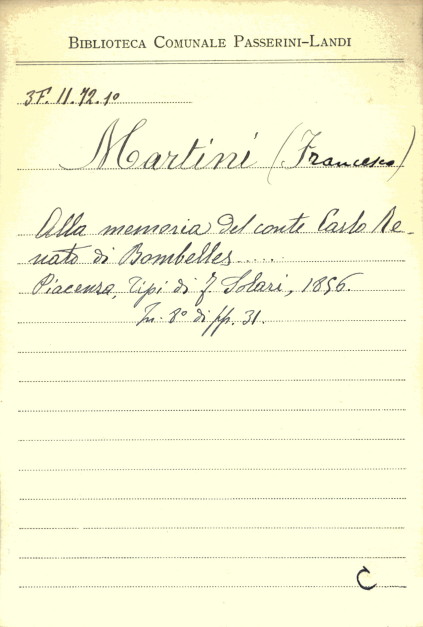 BIBLIOTECA COMUNALE PASSERINI-LANDI
3F. II. 72. 1º
Martini (Francesco)
Alla memoria del conte Carlo Re-
nato di Bombelles.....
Piacenza, Tipi di F. Solari, 1856.
In. 8º di pp. 31.
C